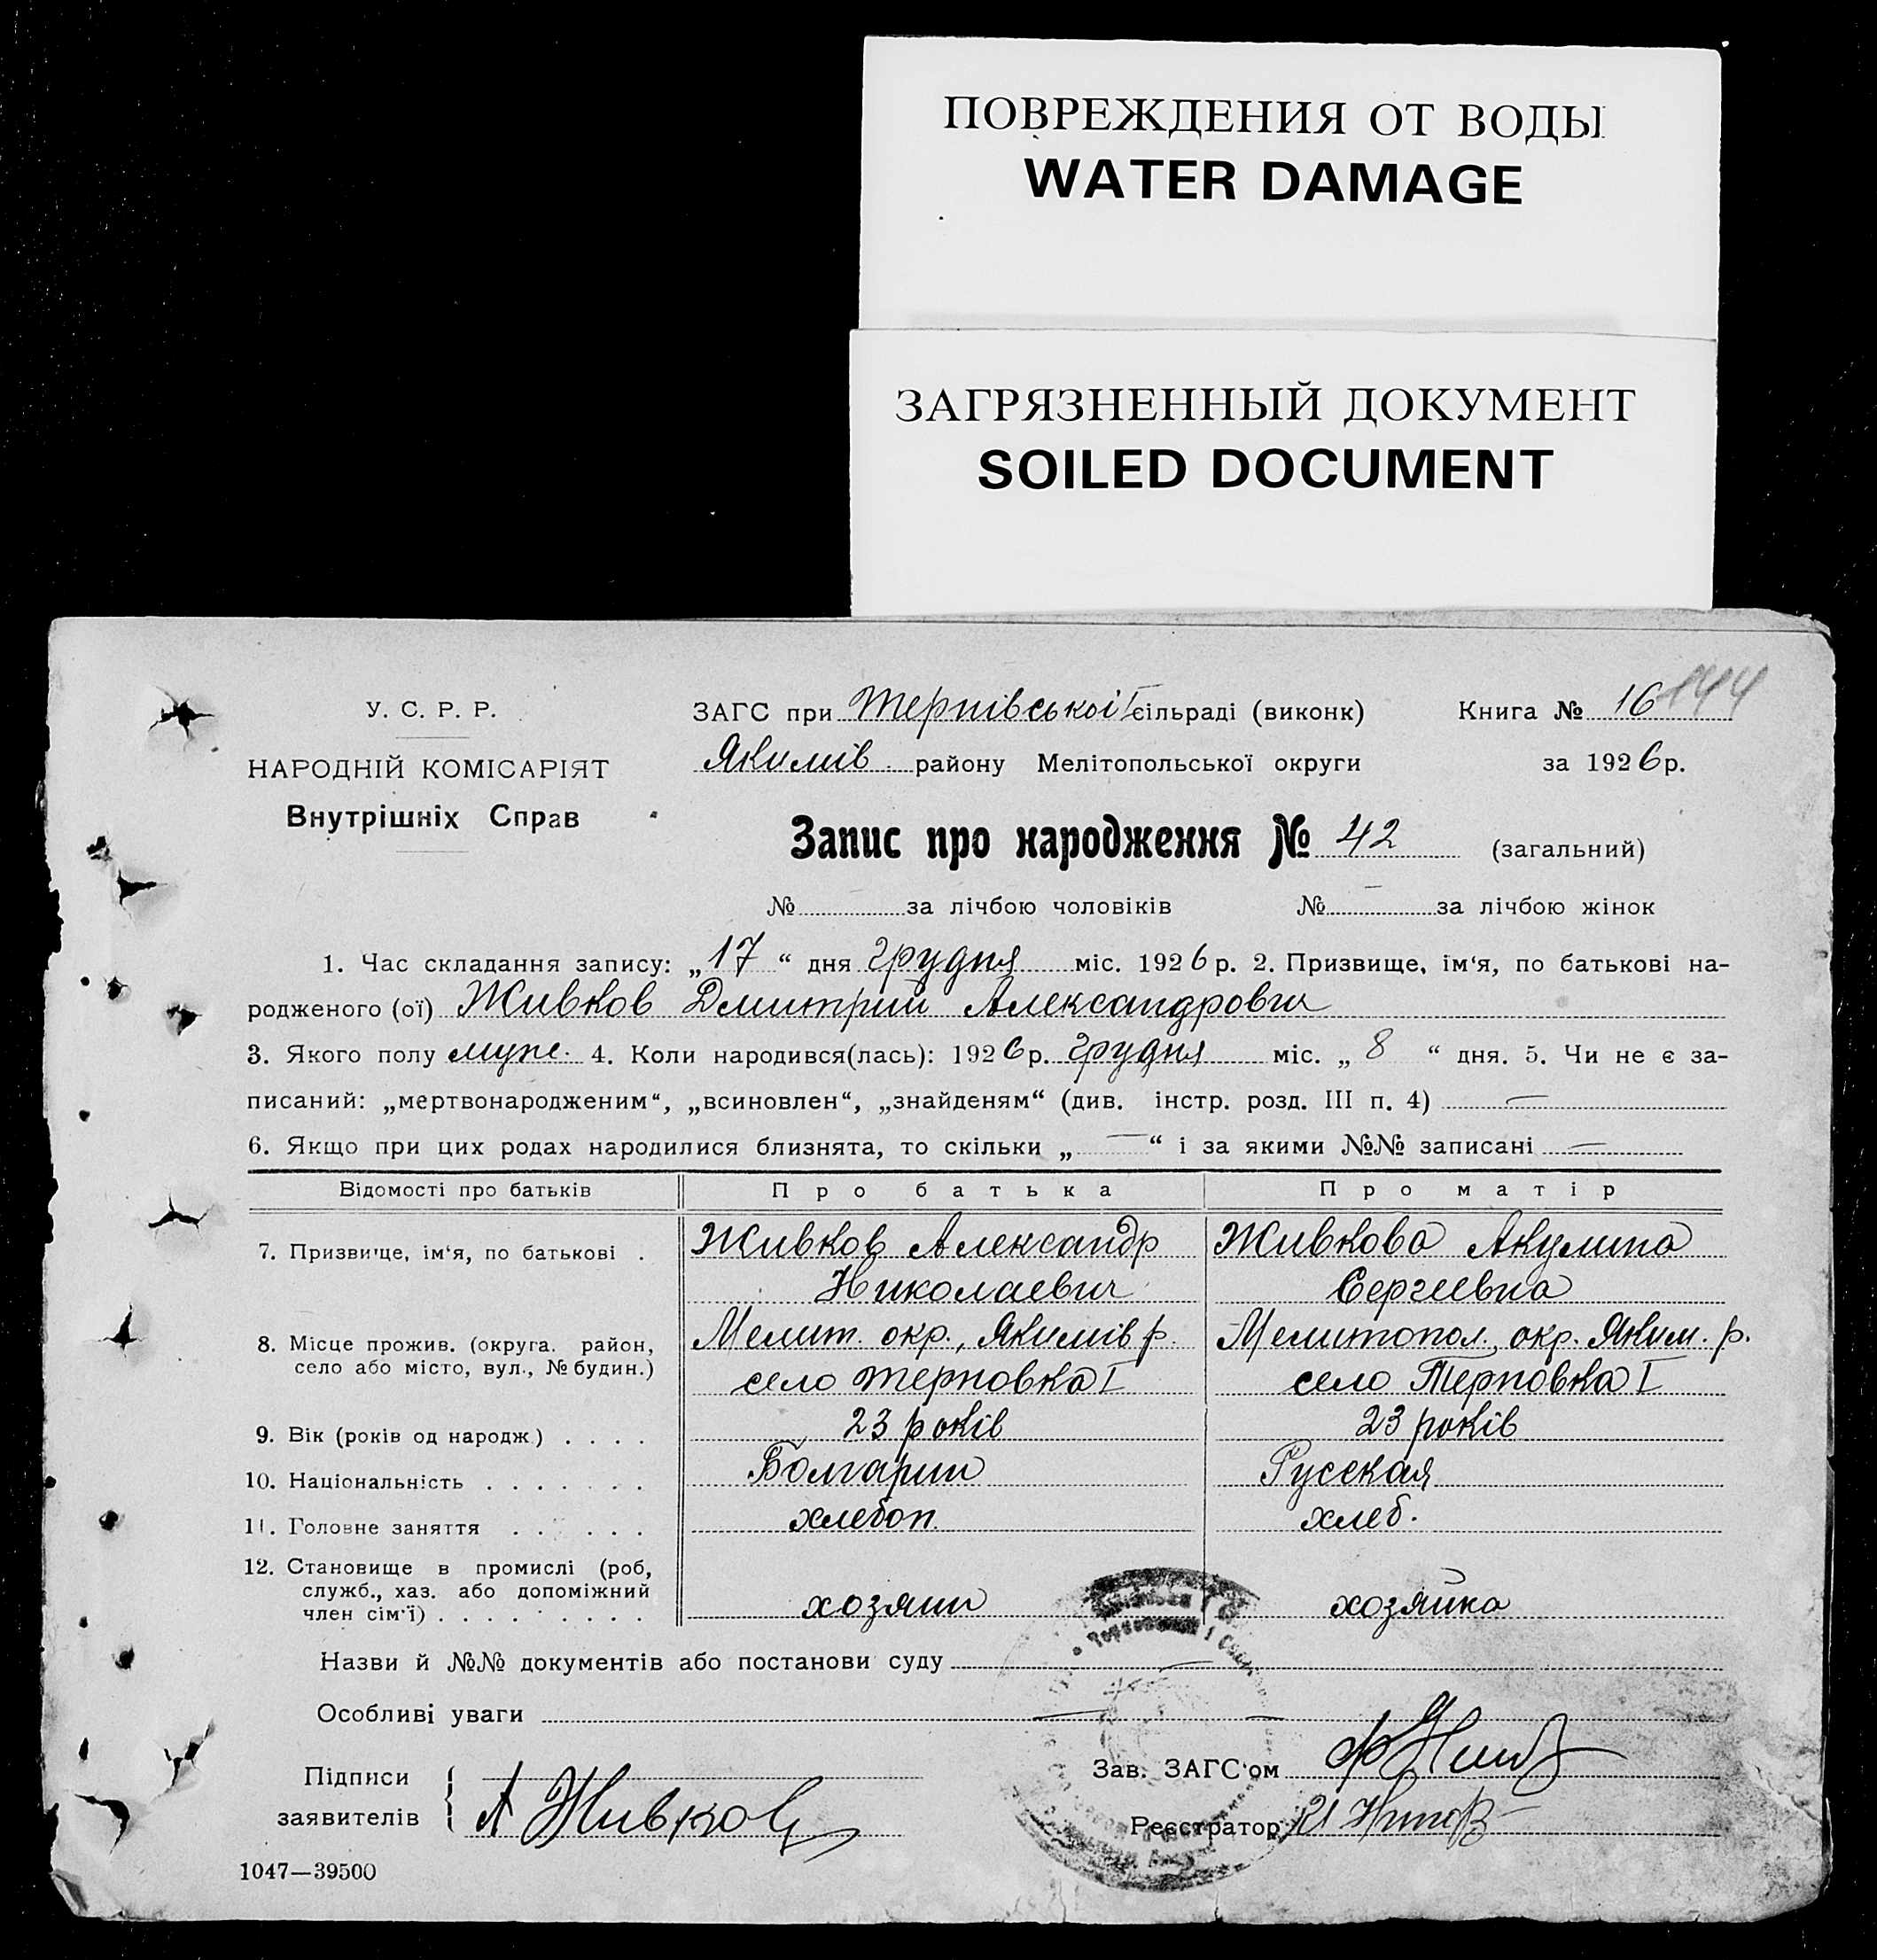 ПОВРЕЖДЕНИЯ ОТ ВОДЫ
WATER DAMAGE
ЗАГРЯЗНЕННЫЙ ДОКУМЕНТ
SOILED DOCUMENT
У. С. Р. Р.
НАРОДНІЙ КОМІСАРІЯТ
Внутрішніх Справ
ЗАГС при Терпівської I сільраді (виконк)
Якимів. району Мелітопольської округи
Книга № 16 144
за 1926 р.
Запис про народження № 42 (загальний)
№ за лічбою чоловіків № — за лічбою жінок
1. Час складання запису: „17“ дня грудня міс. 1926 р. 2. Призвище, ім‘я, по батькові на-
родженого (ої) Живков Дмитрий Александрович
3. Якого полу муж. 4. Коли народився(лась): 1926 р. грудня міс. „8“ дня. 5. Чи не є за-
писаний: „мертвонародженим“, „всиновлен“, „знайденям“ (див. інстр. розд. III п. 4) —
6. Якщо при цих родах народилися близнята, то скільки „—“ і за якими №№ записані —
Відомості про батьків Про батька Про матір
7. Призвище, ім‘я, по батькові . Живков Александр Живкова Акулина
Николаевич Сергеевна
8. Місце прожив. (округа, район, Мелит. окр., Якимів р. Мелитопол. окр. Яким. р.
село або місто, вул., № будин.) село Терповка I село Терповка I
9. Вік (років од народж.) . . . . 23 років 23 років
10. Національність . . . . . . . Болгарин Русская
11. Головне заняття . . . . . . хлебоп. хлеб.
12. Становище в промислі (роб,
служб., хаз. або допоміжний
член сім‘ї) . . . . . . . . . хозяин хозяйка
Назви й №№ документів або постанови суду —
Особливі уваги —
Підписи
заявителів А Живков
Зав. ЗАГС‘ом
Реєстратор
1047—39500